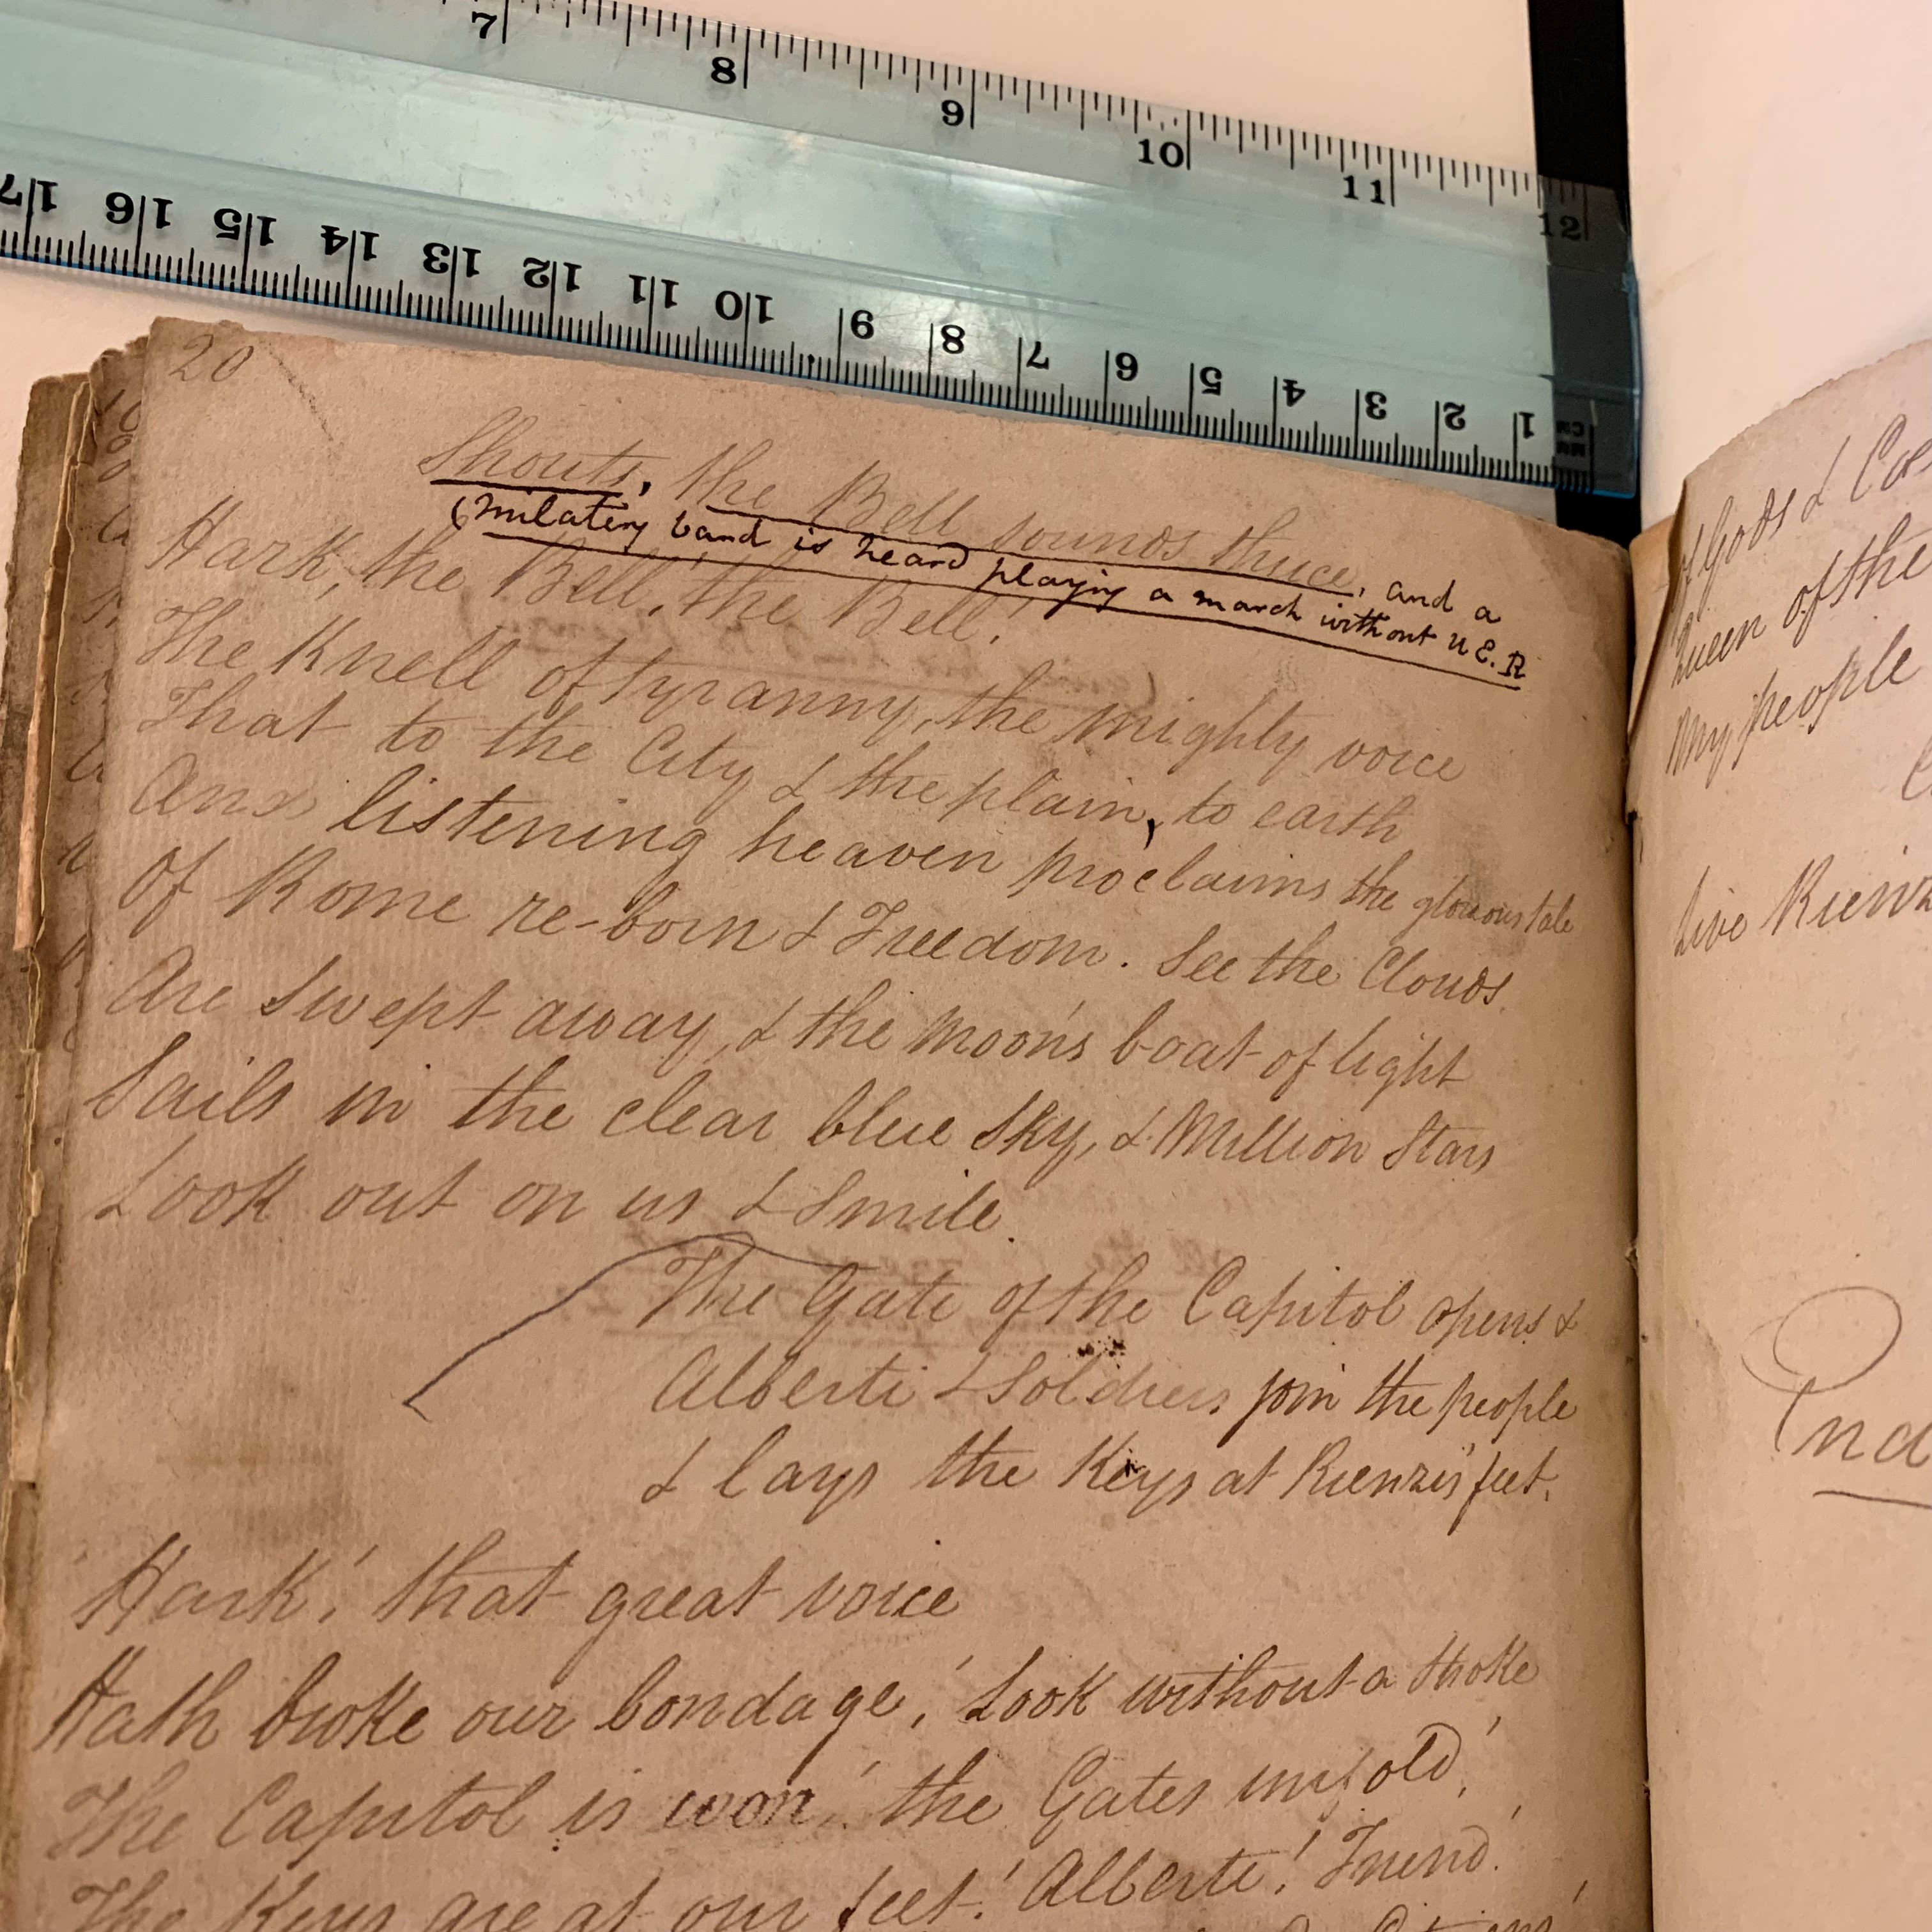 7 8 9 10 11 12
17 16 15 14 13 12 11 10 9 8 7 6 5 4 3 2 1 CM MM
20
Shouts, the Bell sounds thrice, and a
(milatery band is heard playing a march without U.E.R
Hark, the Bell, the Bell!
The Knell of tyranny, the mighty voice
That to the City & the plain, to earth
And listening heaven proclaims the glorious tale
Of Rome re-born & Freedom. See the Clouds
Are swept away, & the Moon's boat of light
Sails in the clear blue sky, & Million Stars
Look out on us & Smile.
The Gate of the Capitol opens &
Alberti & Soldiers join the people
& lays the Keys at Rienzi's feet.
Hark! that great voice
Hath broke our bondage! Look without a Stroke
The Capitol is won! the Gates unfold!
The Keys are at our feet! Alberti! Friend!
of Gods &
Queen of the
My people
Live
End